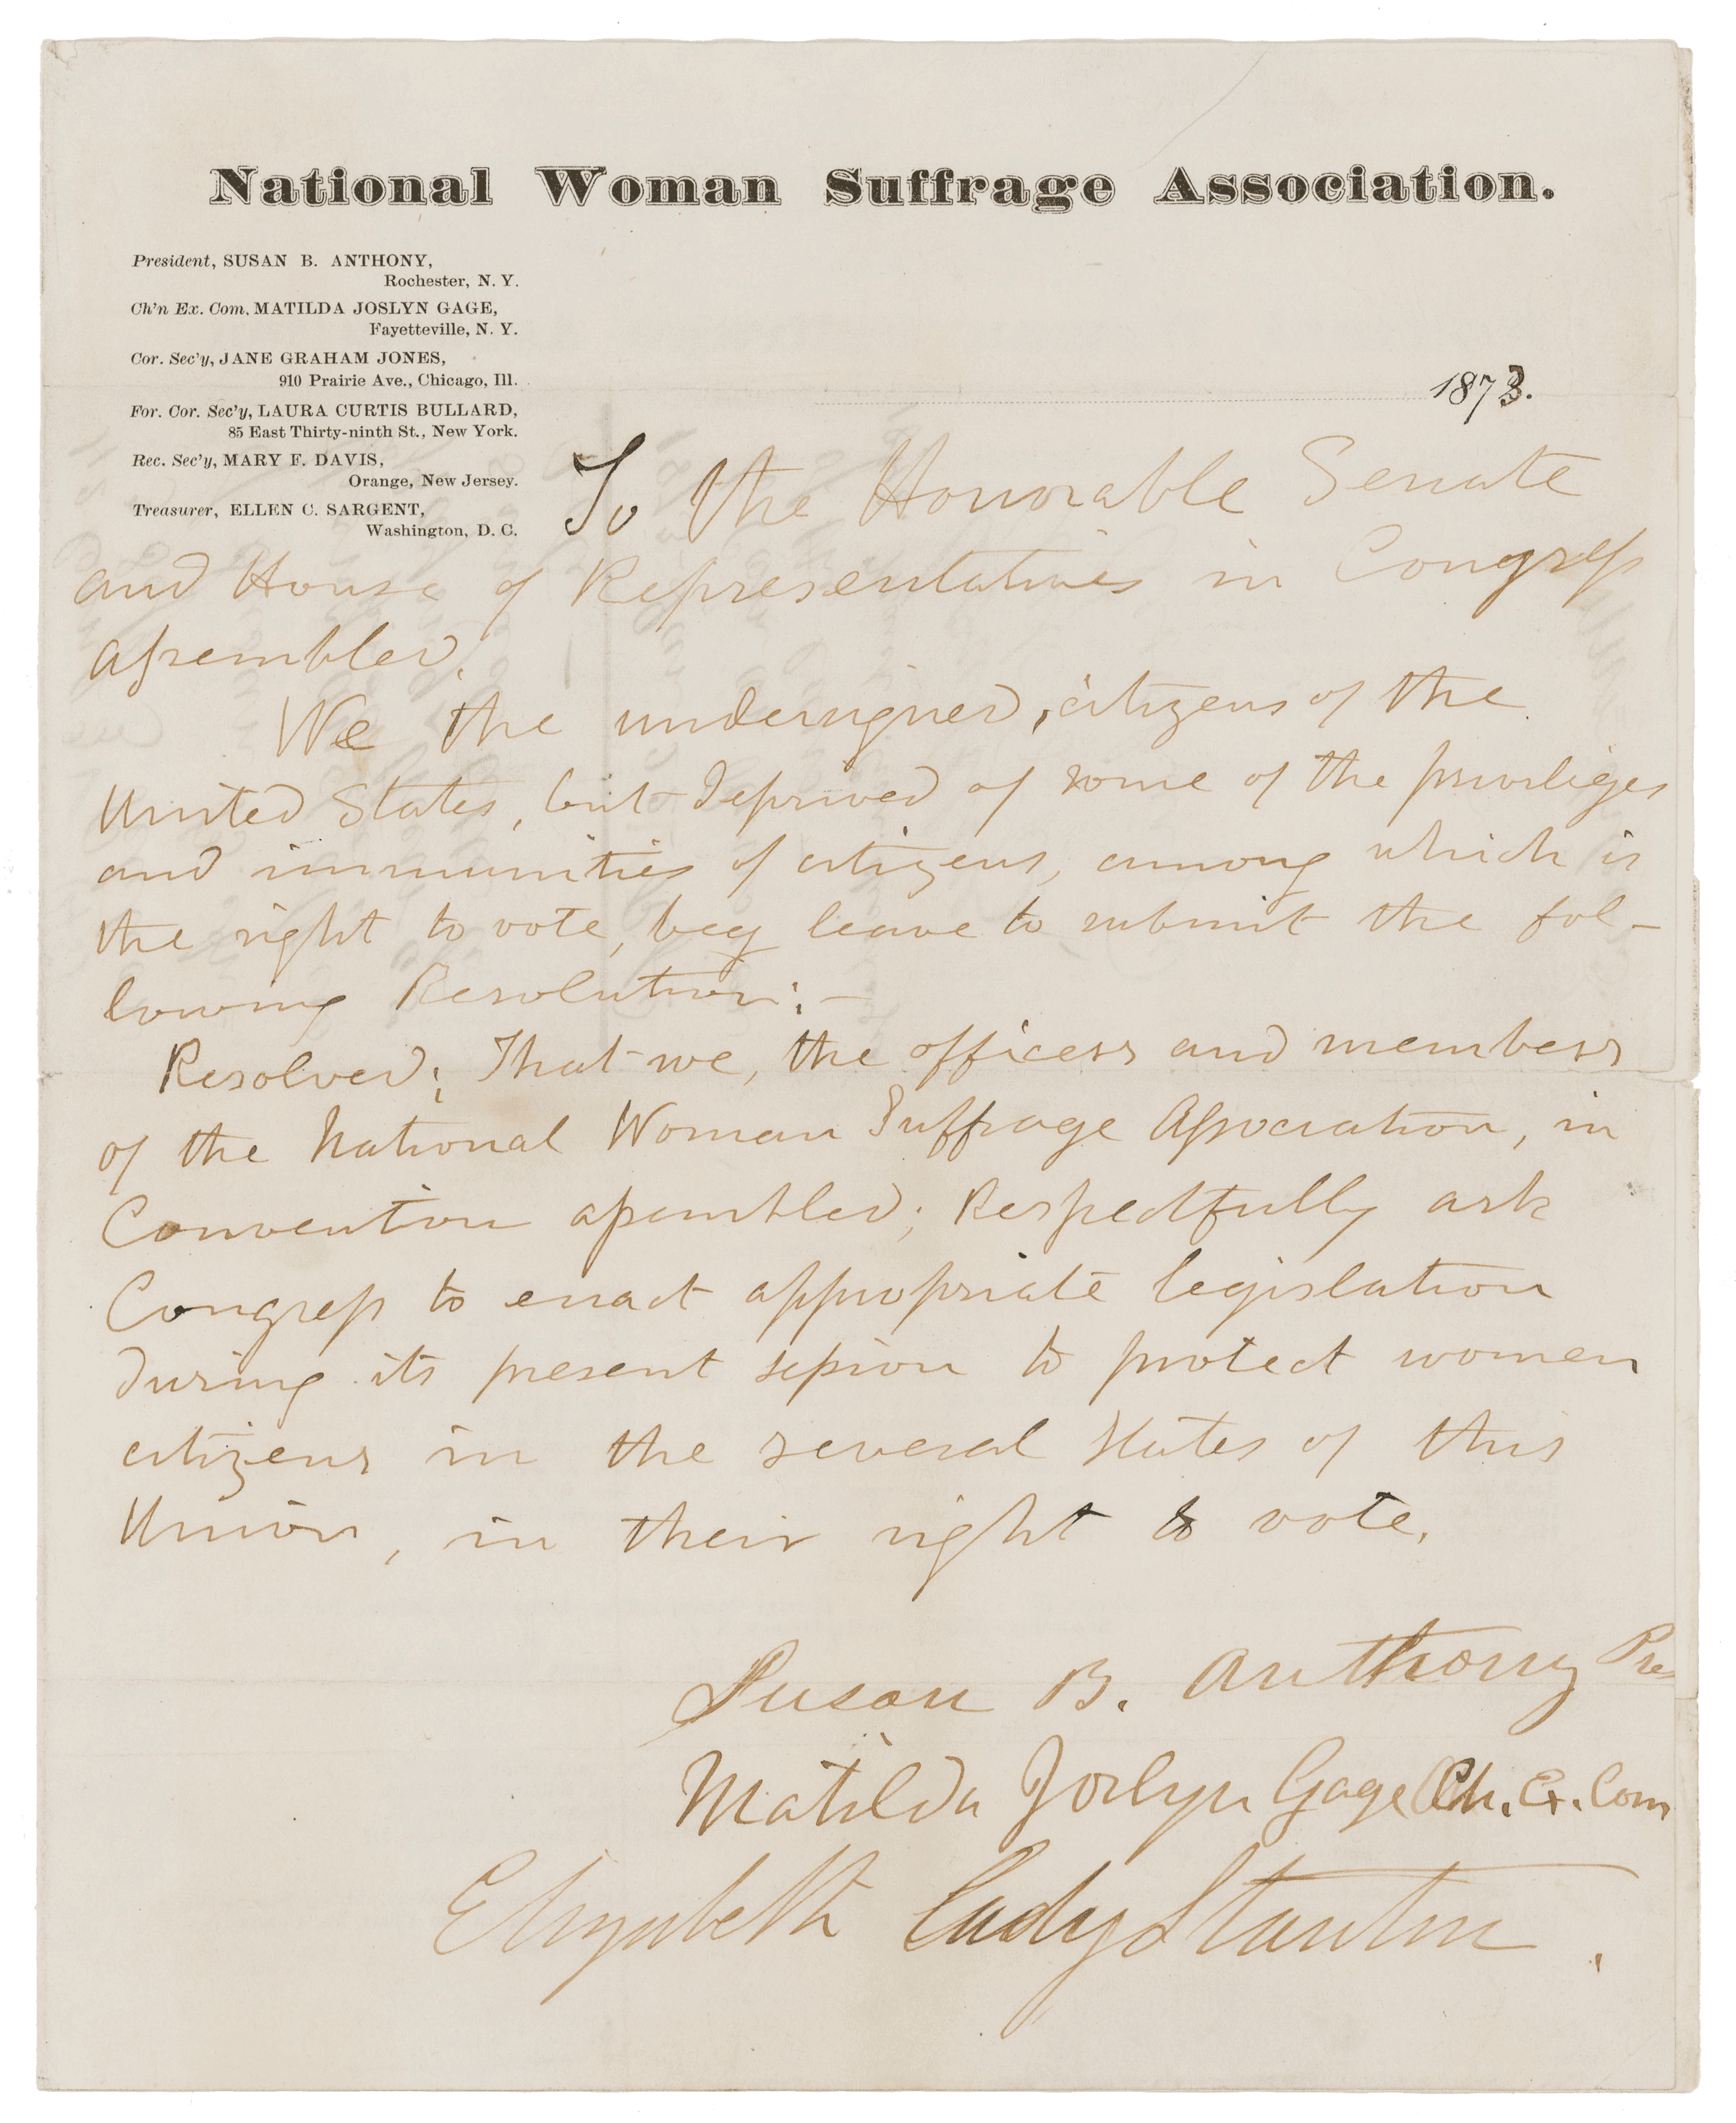 National Woman Suffrage Association.
President, SUSAN B. ANTHONY,
Rochester, N. Y.
Ch'n Ex. Com. MATILDA JOSLYN GAGE,
Fayetteville, N. Y.
Cor. Sec'y, JANE GRAHAM JONES,
910 Prairie Ave., Chicago, Ill.
For. Cor. Sec'y, LAURA CURTIS BULLARD,
85 East Thirty-ninth St., New York.
Rec. Sec'y, MARY F. DAVIS,
Orange, New Jersey.
Treasurer, ELLEN C. SARGENT,
Washington, D. C.
1873.
To the Honorable Senate
and House of Representatives in Congress
assembled.
We the undersigned, citizens of the
United States, but deprived of some of the priviliges
and immunities of citizens, among which is
the right to vote, beg leave to submit the fol-
lowing Resolution:—
Resolved; That we, the officers and members
of the National Woman Suffrage Association, in
Convention assembled; Respectfully ask
Congress to enact appropriate legislation
during its present session to protect women
citizens in the several States of this
Union, in their right to vote.
Susan B. Anthony Pres
Matilda Joslyn Gage Ch. Ex. Com
Elizabeth Cady Stanton.